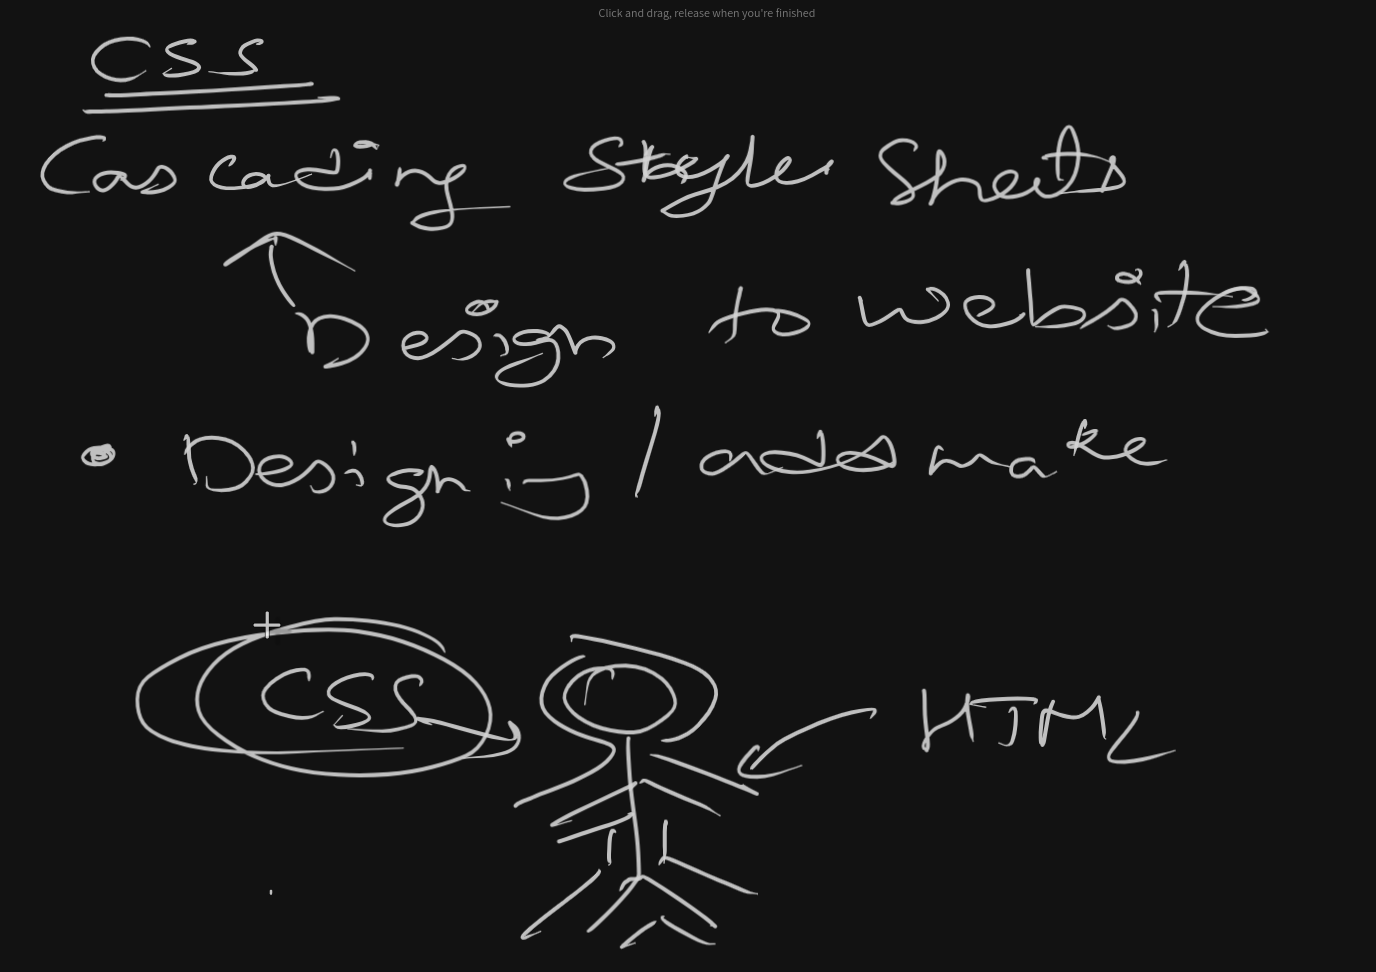 Click and drag, release when you're finished
CSS
Cascading Style Sheets
Design to website
• Designing / adds make
CSS
HTML